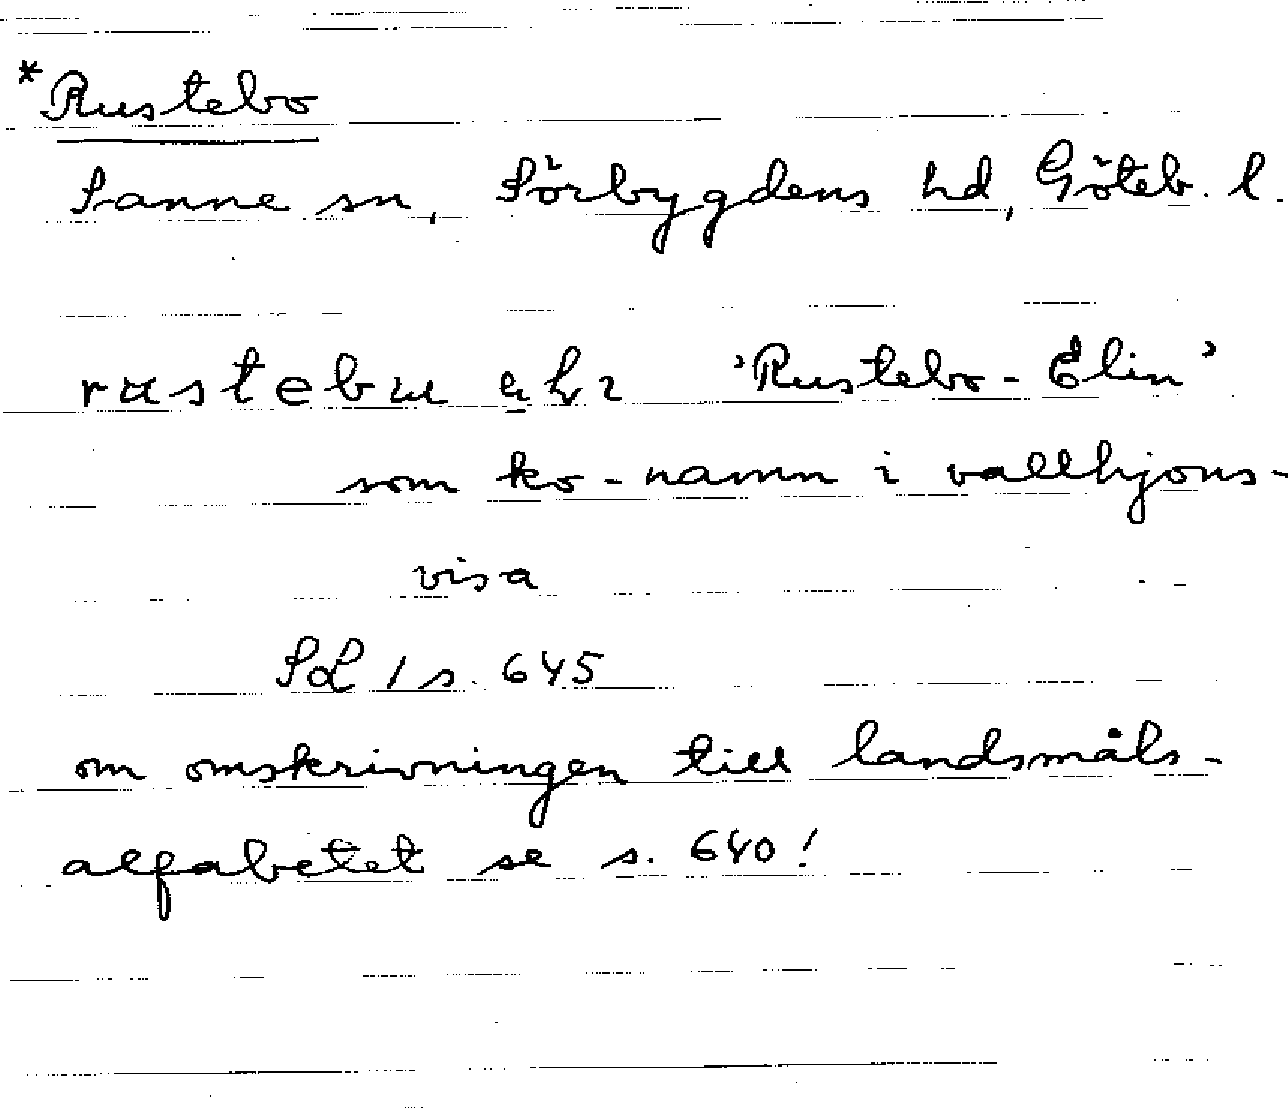 *Rustebo
Sanne sn, Sörbygdens hd, Göteb. l.
'Rustebo-Elin'
som ko-namn i vallhjons-
visa
SL 1 s. 645
om omskrivningen till landsmåls-
alfabetet se s. 640!